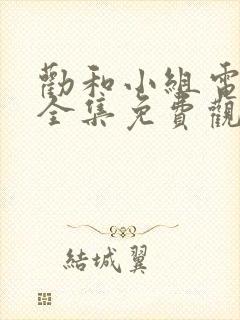 勸和小組電
全集免費觀
結城翼